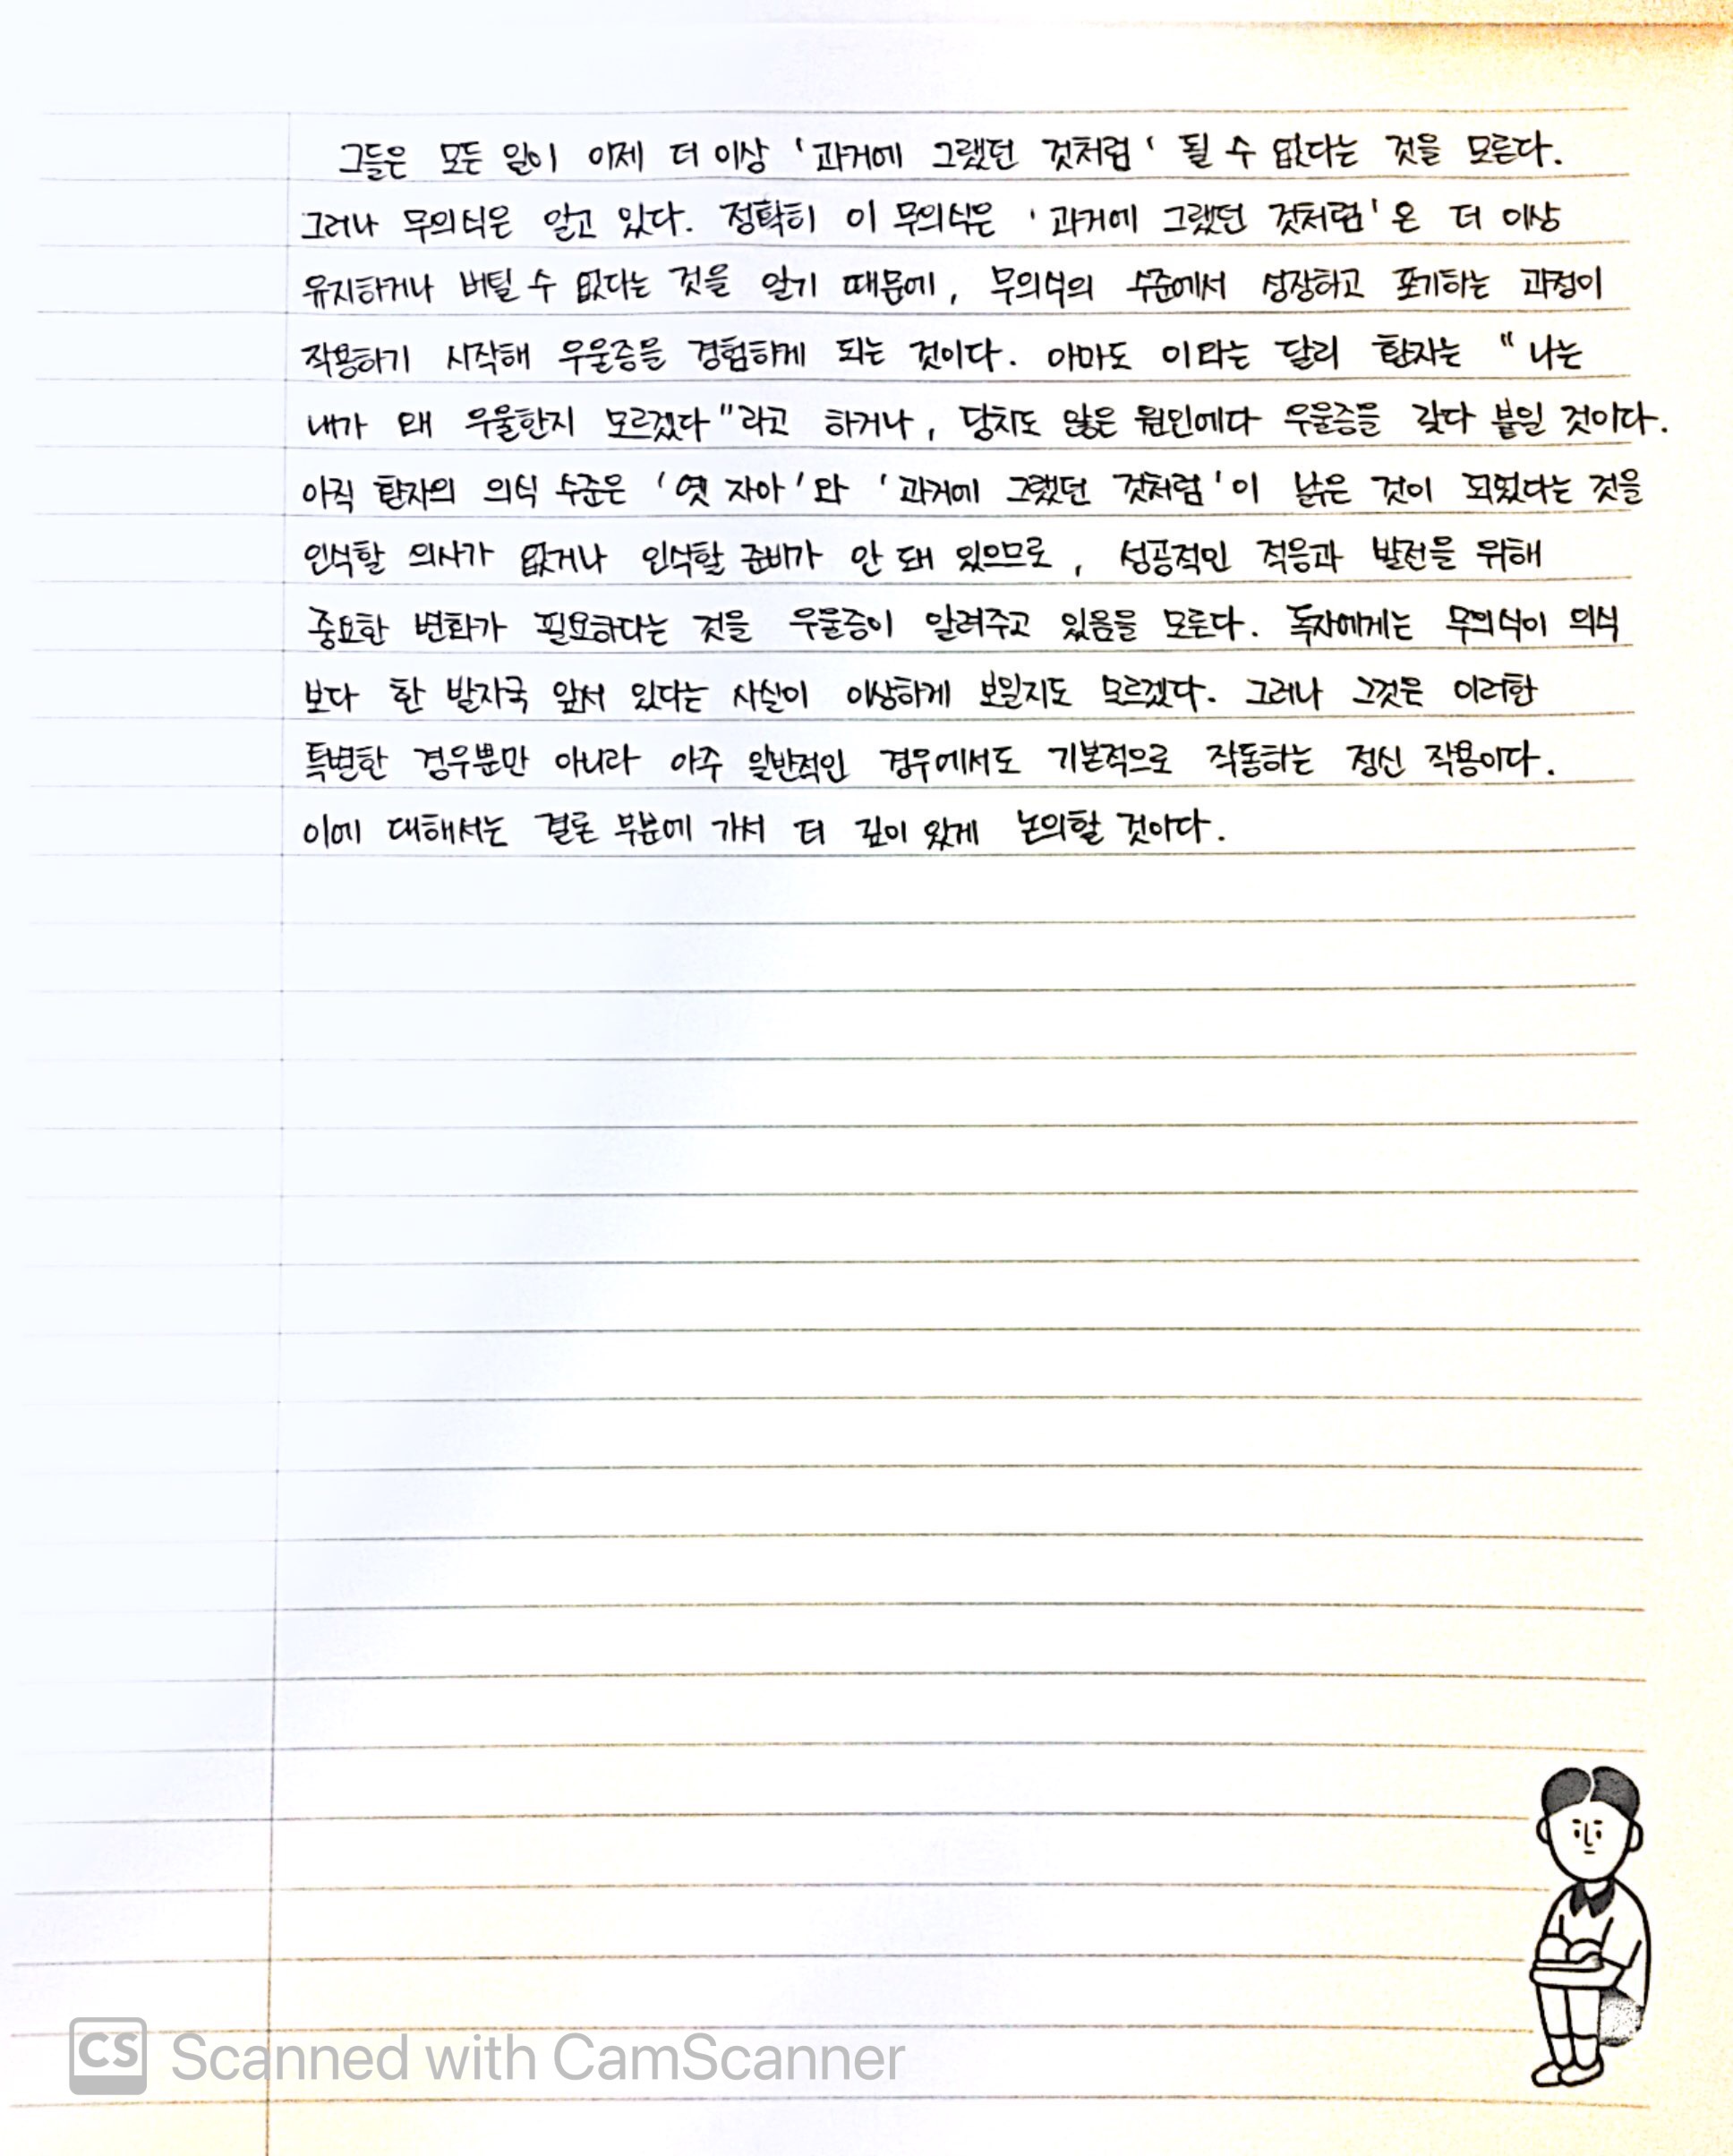 그들은 모든 일이 이제 더 이상 '과거에 그랬던 것처럼' 될 수 없다는 것을 모른다.
그러나 무의식은 알고 있다. 정확히 이 무의식은 '과거에 그랬던 것처럼'은 더 이상
유지하거나 버틸 수 없다는 것을 알기 때문에, 무의식의 수준에서 성장하고 포기하는 과정이
작용하기 시작해 우울증을 경험하게 되는 것이다. 아마도 이와는 달리 환자는 "나는
내가 왜 우울한지 모르겠다"라고 하거나, 당치도 않은 원인에다 우울증을 갖다 붙일 것이다.
아직 환자의 의식 수준은 '옛 자아'와 '과거에 그랬던 것처럼'이 낡은 것이 되었다는 것을
인식할 의사가 없거나 인식할 준비가 안 돼 있으므로, 성공적인 적응과 발전을 위해
중요한 변화가 필요하다는 것을 우울증이 알려주고 있음을 모른다. 독자에게는 무의식이 의식
보다 한 발자국 앞서 있다는 사실이 이상하게 보일지도 모르겠다. 그러나 그것은 이러한
특별한 경우뿐만 아니라 아주 일반적인 경우에서도 기본적으로 작동하는 정신 작용이다.
이에 대해서는 결론 부분에 가서 더 깊이 있게 논의할 것이다.
CS Scanned with CamScanner